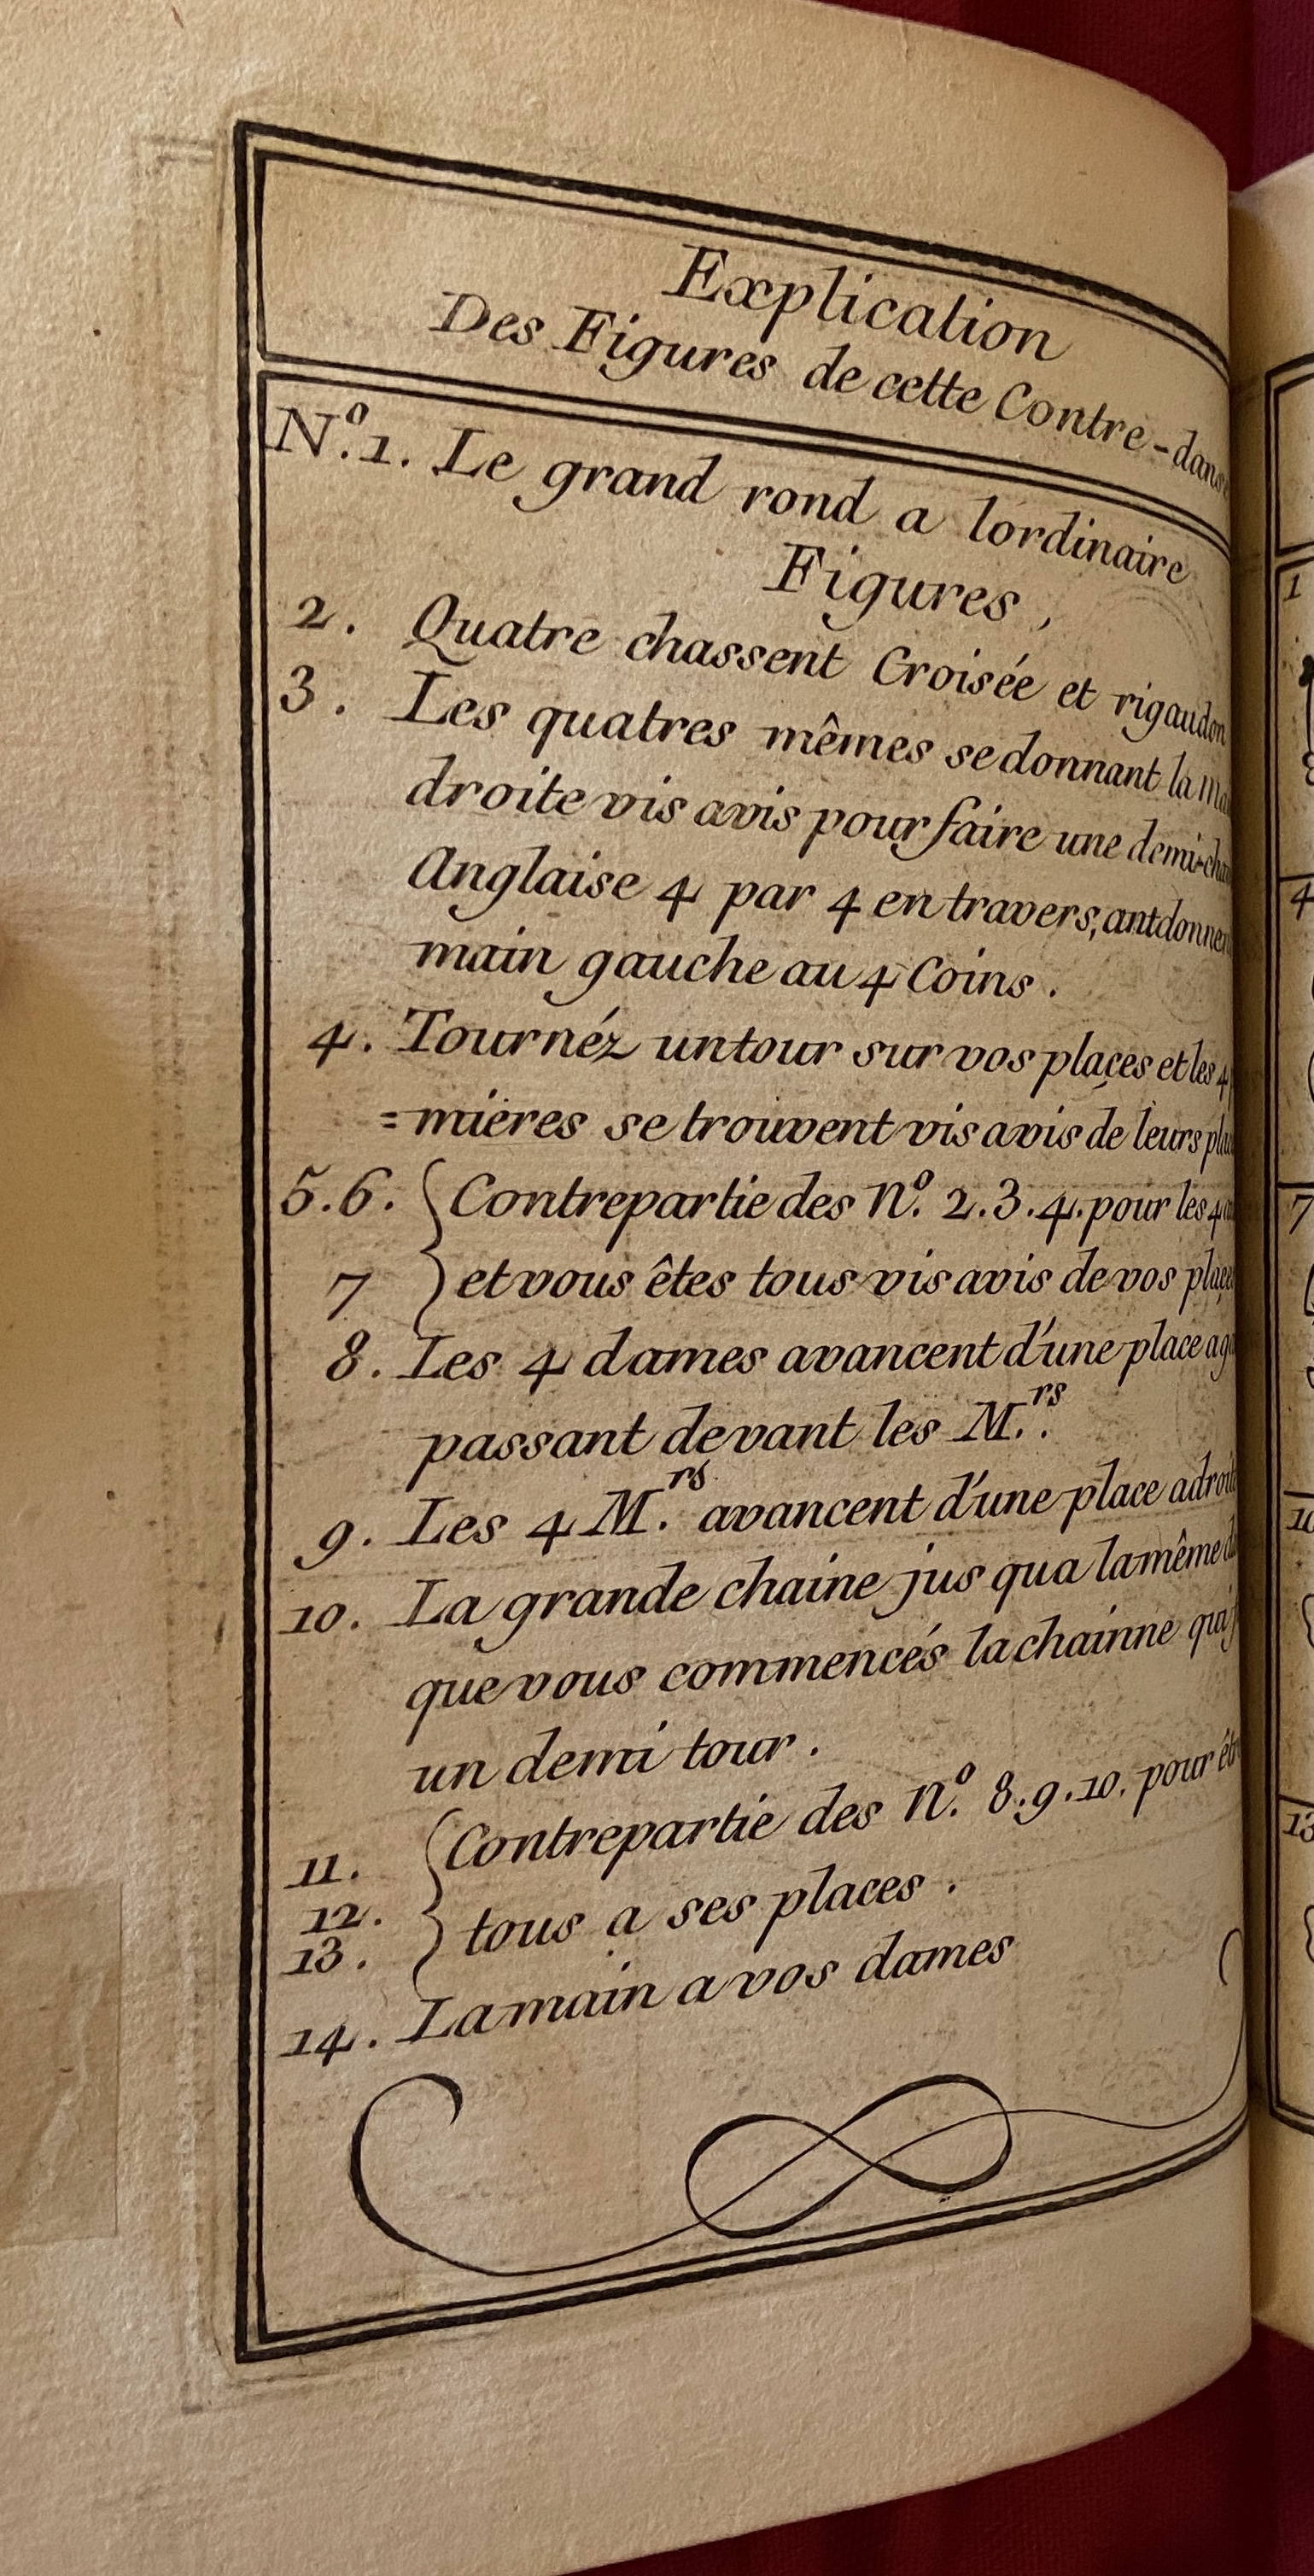 Explication
Des Figures de cette Contre-danse
N.º 1. Le grand rond a lordinaire
Figures,
2. Quatre chassent Croisée et rigaudon
3. Les quatres mêmes se donnant la
droite vis avis pour faire une demi-
Anglaise 4 par 4 en travers,
main gauche au 4 Coins.
4. Tournéz un tour sur vos places et les 4
=mieres se trouvent vis avis de leurs
5.6. Contrepartie des N.º 2.3.4. pour les 4
7 et vous êtes tous vis avis de vos
8. Les 4 dames avancent d'une place
passant devant les M.rs.
9. Les 4 M.rs avancent d'une place
10. La grande chaine jus qua la même
que vous commencés la chainne
un demi tour.
11. Contrepartie des N.º 8.9.10. pour
12. tous a ses places.
13.
14. La main a vos dames
1
4
7
10
13